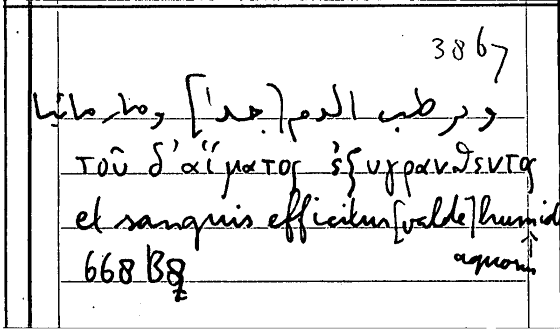 3867
ويرطب الدم [جدا] وصار مائيا
τοῦ δ' αἵματος ἐξυγρανθέντος
et sanguis efficitur [valde] humid
aquosus
668 B8